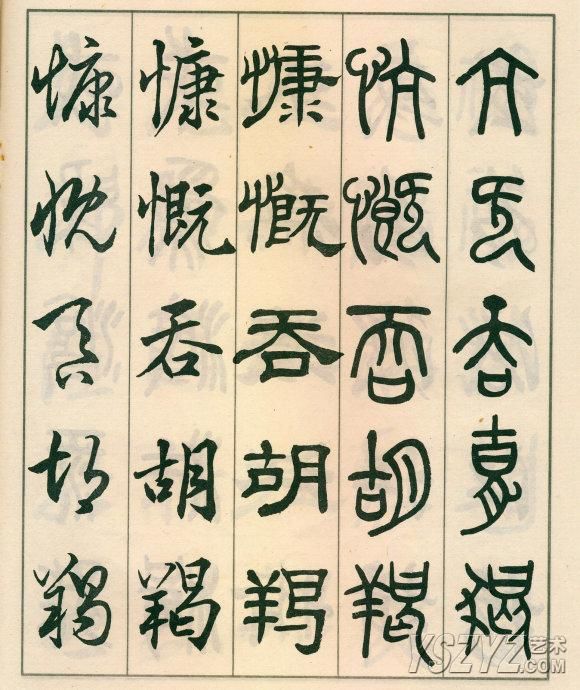 亢旡吞
忼慨吞胡羯
慷慨吞胡羯
慷慨吞胡羯
慷慨吞胡羯
YSZYZ艺术